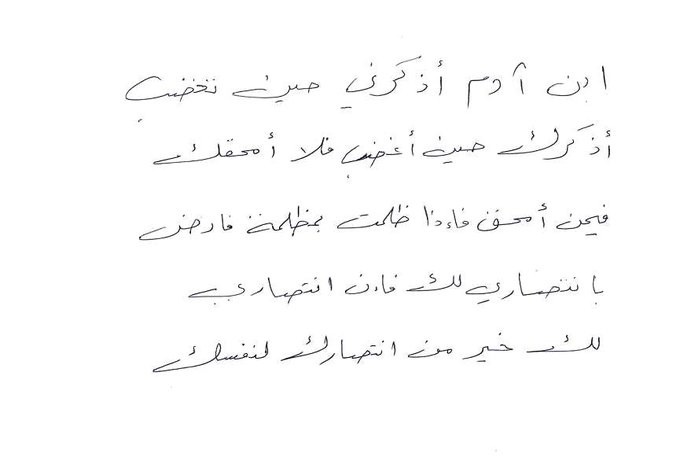 ابن آدم أذكرني حين تغضب
أذكرك حين أغضب فلا أمحقك
فيمن أمحق فإذا ظلمت بمظلمة فارض
بانتصاري لك فإن انتصاري
لك خير من انتصارك لنفسك